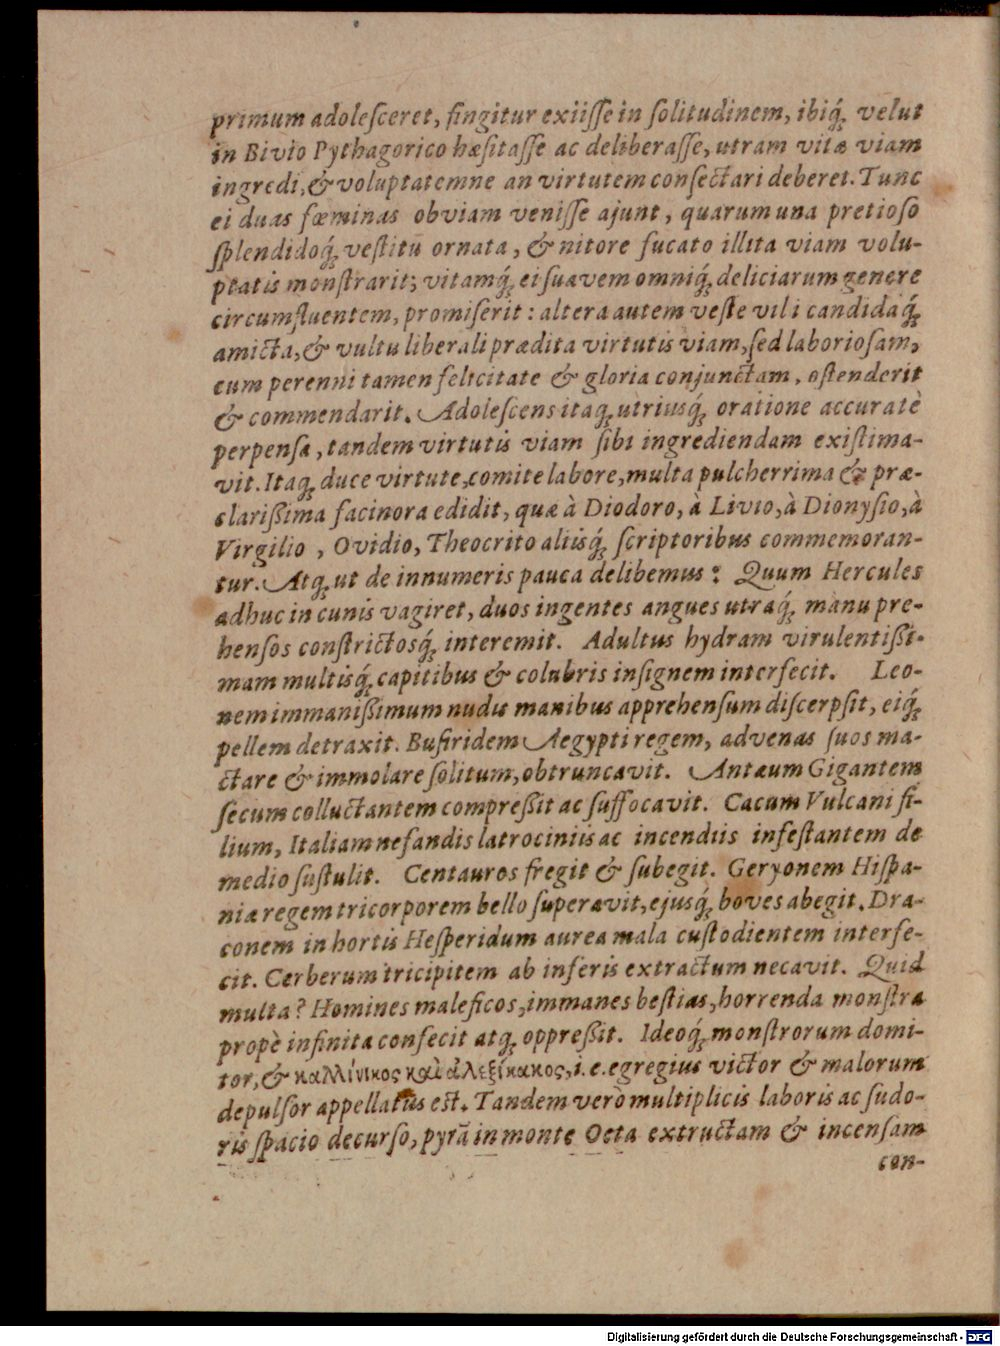 primum adoleſceret, fingitur exiiſſe in ſolitudinem, ibiq́; velut
in Bivio Pythagorico hæſitaſſe ac deliberaſſe, utram vitæ viam
ingredi, & voluptatemne an virtutem conſectari deberet. Tunc
ei duas fœminas obviam veniſſe ajunt, quarum una pretioſo
ſplendidoq́; veſtitu ornata, & nitore fucato illita viam volu-
ptatis monſtrarit; vitamq́; ei ſuavem omniq́; deliciarum genere
circumfluentem, promiſerit: altera autem veſte vili candidaq́;
amicta, & vultu liberali prædita virtutis viam, ſed laborioſam,
cum perenni tamen felicitate & gloria conjunctam, oſtenderit
& commendarit. Adoleſcens itaq; utriusq́; oratione accuratè
perpenſa, tandem virtutis viam ſibi ingrediendam exiſtima-
vit. Itaq; duce virtute, comite labore, multa pulcherrima & præ-
clariſſima facinora edidit, quæ à Diodoro, à Livio, à Dionyſio, à
Virgilio, Ovidio, Theocrito aliisq́; ſcriptoribus commemoran-
tur. Atq; ut de innumeris pauca delibemus: Quum Hercules
adhuc in cunis vagiret, duos ingentes angues utraq́; manu pre-
henſos conſtrictosq́; interemit. Adultus hydram virulentißi-
mam multisq́; capitibus & colubris inſignem interfecit. Leo-
nem immanißimum nudis manibus apprehenſum diſcerpſit, eiq́;
pellem detraxit. Buſiridem Aegypti regem, advenas ſuos ma-
ctare & immolare ſolitum, obtruncavit. Antæum Gigantem
ſecum colluctantem compreßit ac ſuffocavit. Cacum Vulcani fi-
lium, Italiam nefandis latrociniis ac incendiis infeſtantem de
medio ſuſtulit. Centauros fregit & ſubegit. Geryonem Hiſpa-
niæ regem tricorporem bello ſuperavit, ejusq́; boves abegit. Dra-
conem in hortis Heſperidum aurea mala cuſtodientem interfe-
cit. Cerberum tricipitem ab inferis extractum necavit. Quid
multa? Homines maleficos, immanes beſtias, horrenda monſtra
propè infinita confecit atq; oppreßit. Ideoq́; monſtrorum domi-
tor, & καλλίνικος καὶ ἀλεξίκακος, i. e. egregius victor & malorum
depulſor appellatus eſt. Tandem verò multiplicis laboris ac ſudo-
ris ſpacio decurſo, pyrã in monte Oeta extructam & incenſam
con-
Digitalisierung gefördert durch die Deutsche Forschungsgemeinschaft - DFG